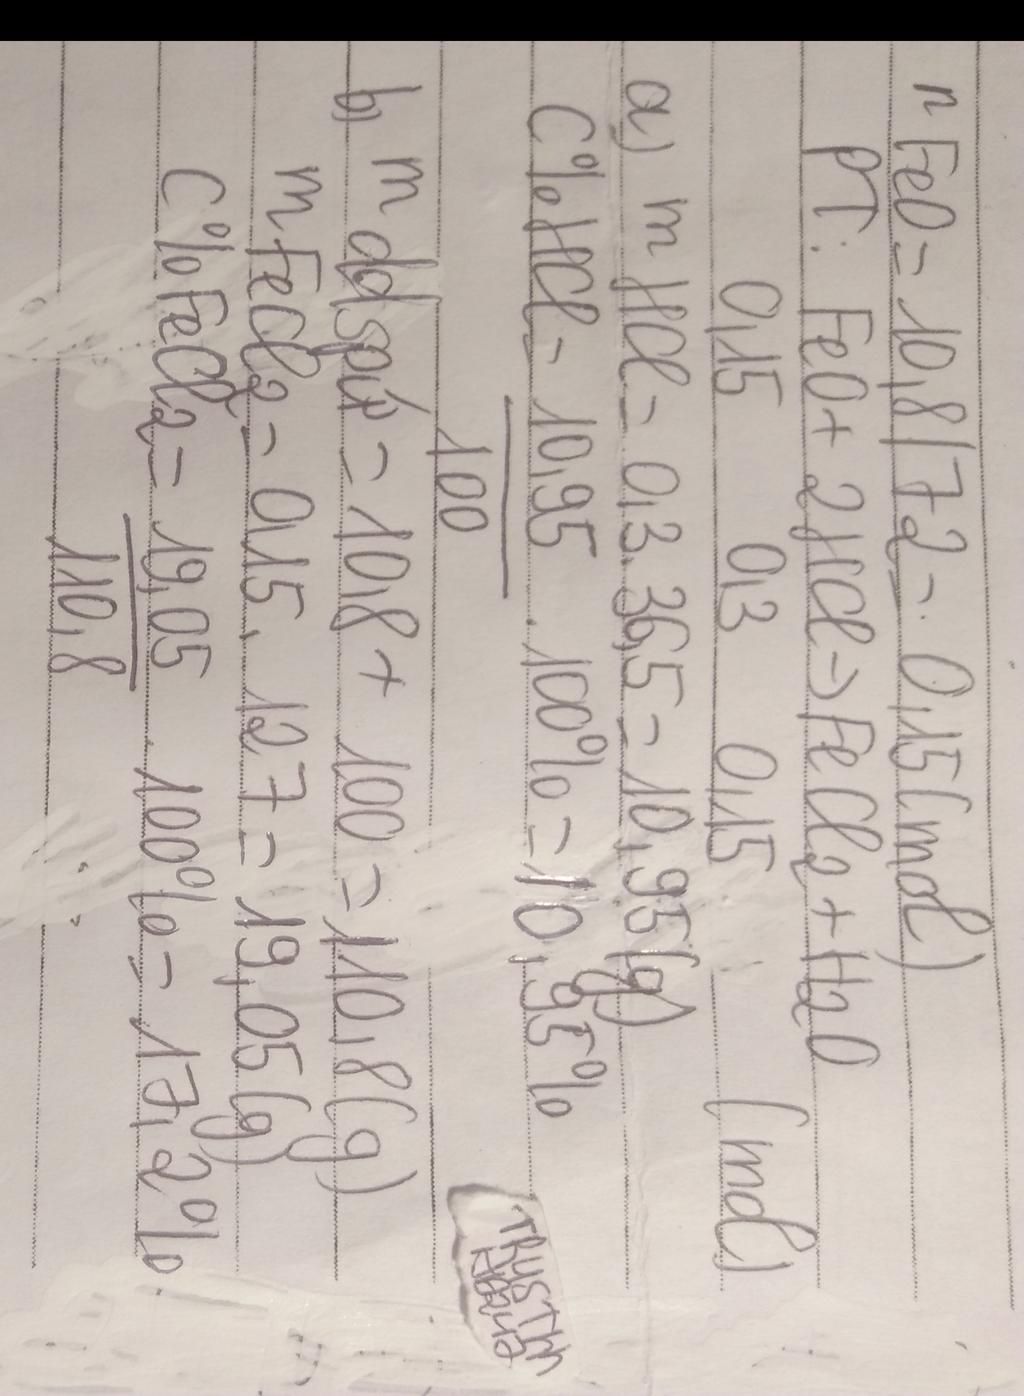 nFeO = 10,8/72 = 0,15 (mol)
PT: FeO + 2HCl -> FeCl2 + H2O
0,15 0,3 0,15 (mol)
a) mHCl = 0,3.36,5 = 10,95 (g)
C%HCl = 10,95 . 100% = 10,95%
100
b, m dd spứ = 10,8 + 100 = 110,8 (g)
mFeCl2 = 0,15. 127 = 19,05 (g)
C%FeCl2 = 19,05 . 100% = 17,2%
110,8